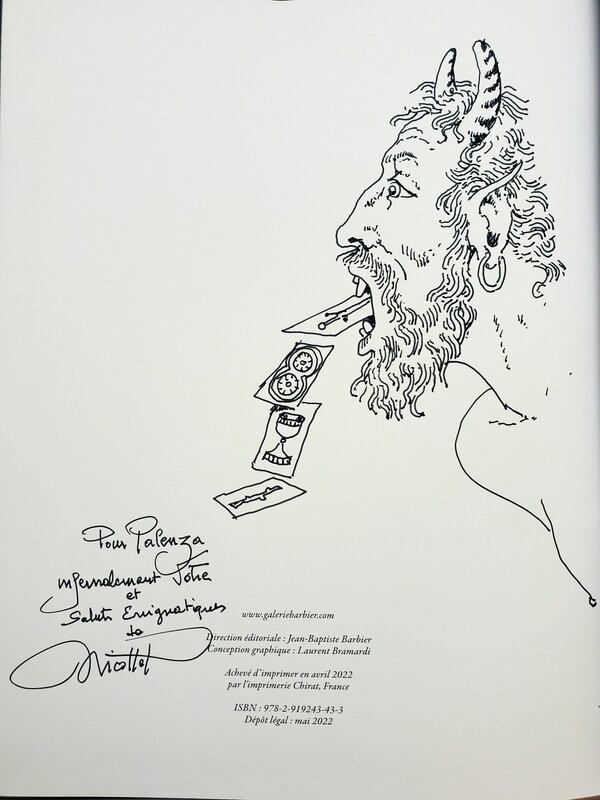 Pour Palenza
infernalement Vôtre
et
Saluts Enigmatiques
de
Nicollet
www.galeriebarbier.com
Direction éditoriale : Jean-Baptiste Barbier
Conception graphique : Laurent Bramardi
Achevé d'imprimer en avril 2022
par l'imprimerie Chirat, France
ISBN : 978-2-919243-43-3
Dépôt légal : mai 2022